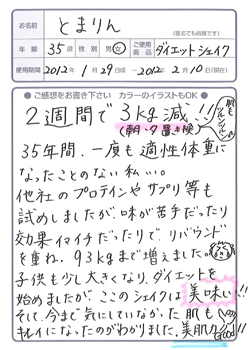 お名前 とまりん (匿名でも結構です)
年齢 35歳 性別 男・女 ご使用商品 ダイエットシェイク
使用期間 2012年 1月 29日 ～ 2012年 2月 10日(現在)
● ご感想をお書き下さい カラーのイラストもOK ●
2週間で 3kg減!!
(朝・夕置き換え)
肌もツルンツルン
35年間、一度も適性体重に
なったことのない私…。
他社のプロテインやサプリ等も
試しましたが、味が苦手だったり
効果イマイチだったりで、リバウンド
を重ね、93kgまで増えました。
子供も少し大きくなり、ダイエットを
始めましたが、ここのシェイクは美味い!!
そして、今まで気にしていなかった肌も
キレイになったのがわかりました。美肌!!
Good!!